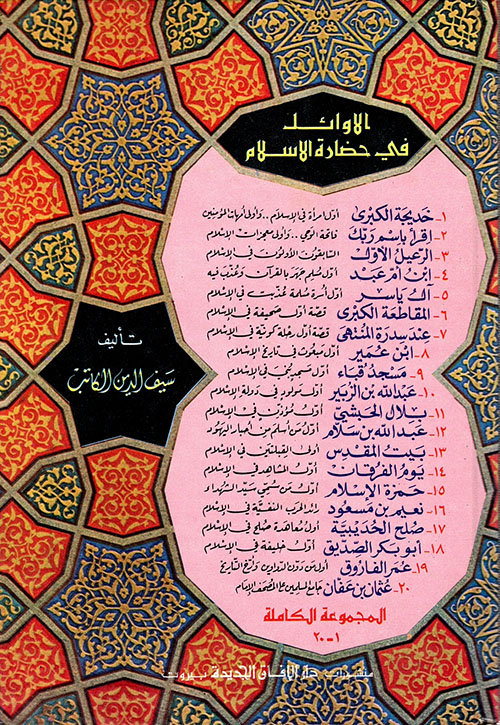 الأوائل
في حضارة الإسلام
١- خديجة الكبرى أول امرأة في الإسلام.. وأولى أمهات المؤمنين
٢- اقرأ باسم ربك فاتحة الوحي.. وأولى معجزات الإسلام
٣- الرعيل الأول السابقون الأولون في الإسلام
٤- ابن أم عبد أول مسلم جهر بالقرآن وعُذّب فيه
٥- آل ياسر أول أسرة مسلمة عذبت في الإسلام
٦- المقاطعة الكبرى قصة أول صحيفة في الإسلام
٧- عند سدرة المنتهى قصة أول رحلة كونية في الإسلام
٨- ابن عمير أول مبعوث في تاريخ الإسلام
٩- مسجد قباء أول مسجد بُني في الإسلام
١٠- عبد الله بن الزبير أول مولود في دولة الإسلام
١١- بلال الحبشي أول مؤذن في الإسلام
١٢- عبد الله بن سلام أول من أسلم من أحبار اليهود
١٣- بيت المقدس أولى القبلتين في الإسلام
١٤- يوم الفرقان أول المشاهد في الإسلام
١٥- حمزة الإسلام أول من سُمّي سيّد الشهداء
١٦- نعيم بن مسعود رائد الحرب النفسية في الإسلام
١٧- صلح الحديبية أول معاهدة صلح في الإسلام
١٨- أبو بكر الصديق أول خليفة في الإسلام
١٩- عمر الفاروق أول من دوّن الدواوين وأرّخ التاريخ
٢٠- عثمان بن عفان جامع المسلمين على المصحف الإمام
المجموعة الكاملة
١-٢٠
تأليف
سيف الدين الكاتب
منشورات دار الآفاق الجديدة بيروت